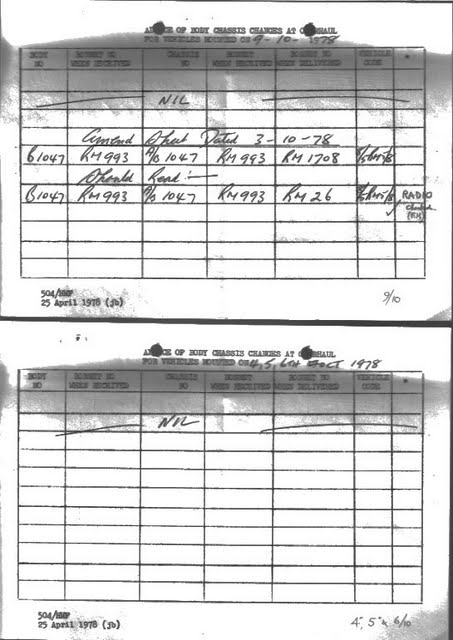 ADVICE OF BODY CHASSIS CHANGES AT OVERHAUL
FOR VEHICLES MOUNTED ON 9-10-1978
BODY NO BONNET NO WHEN RECEIVED CHASSIS NO BONNET WHEN RECEIVED BONNET NO WHEN DELIVERED VEHICLE CODE *
NIL
Amend Sheet Dated 3-10-78
B1047 RM993 1047 RM993 RM1708
Should Read :—
B1047 RM993 1047 RM993 RM26 RADIO
✓ Checked (RH)
504/HMF
25 April 1978 (jb)
9/10
ADVICE OF BODY CHASSIS CHANGES AT OVERHAUL
FOR VEHICLES MOUNTED ON 4, 5, 6TH OCT 1978
BODY NO BONNET NO WHEN RECEIVED CHASSIS NO BONNET WHEN RECEIVED BONNET NO WHEN DELIVERED VEHICLE CODE *
NIL
504/HMF
25 April 1978 (jb)
4, 5 & 6/10